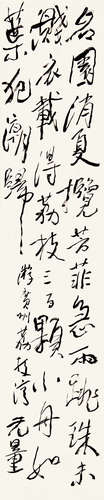 名園消夏攬芳菲急雨跳珠未
濺衣載得荔枝三百顆小舟如
葉犯潮歸 游廣州荔枝灣 元量